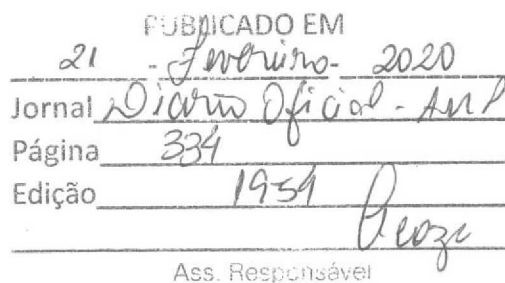 PUBLICADO EM
21 - Fevereiro - 2020
Jornal Diário Oficial - AMP
Página 334
Edição 1954
Ass. Responsável